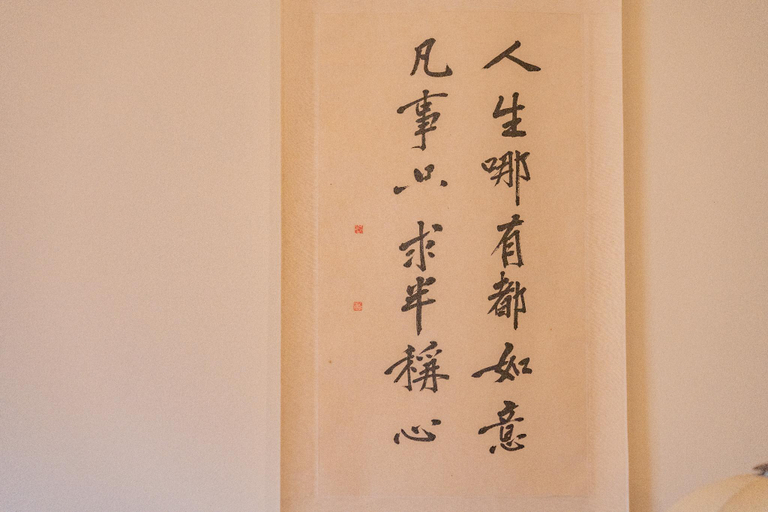 人生哪有都如意
凡事只求半稱心